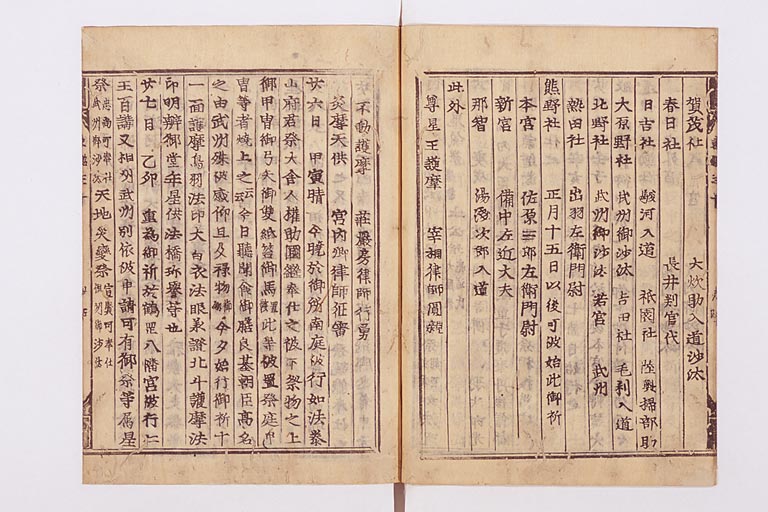 賀茂社 大炊助入道沙汰
春日社 長井判官代
日吉社 駿河入道 祇園社 陸奥掃部助
大原野社 武州御沙汰 吉田社 毛利入道
北野社 武州御沙汰 若宮 武州
熱田社 出羽左衛門尉
熊野社 正月十五日以後可被始此御祈
本宮 佐原三郎左衛門尉
新宮 備中左近大夫
那智 湯浅次郎入道
此外
尊星王護摩 宰相律師圓親
不動護摩 莊嚴房律師行勇
炎魔天供 宮内卿律師征審
廿六日 甲寅晴 今曉於御所南庭被行如法泰
山府君祭大舎人權助國継奉仕之被下祭物之上
御甲冑御弓矢御雙紙筥御馬置此等被置祭庭
冑等者燒上之云云今日聽聞食御膳良基朝臣高名
之由武州殊被感仰且及禄物今夕始行御祈十
一面護摩鳥羽法印大白衣法眼兼證北斗護摩法
印明辨御當年星供法橋珍譽等也
廿七日 乙卯 重為御祈於鶴岡八幡宮被行仁
王百講又相州武州別依被申請可有御祭等属星
祭忠尚可奉仕武州御沙汰天地災變祭宣賢可奉仕相州御沙汰